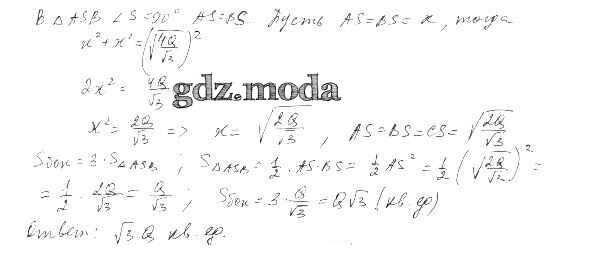 В △ASB ∠S=90° AS=BS. Пусть AS=BS=x, тогда
x²+x²=(√(4Q/√3))²
2x²= 4Q/√3
gdz.moda
x²= 2Q/√3 => x= √(2Q/√3), AS=BS=CS=√(2Q/√3)
Sбок=3·S△ASB ; S△ASB=1/2·AS·BS= 1/2 AS²=1/2(√(2Q/√3))²=
=1/2·2Q/√3=Q/√3 ; Sбок=3·Q/√3=Q√3 (кв.ед)
Ответ: √3 Q кв.ед.